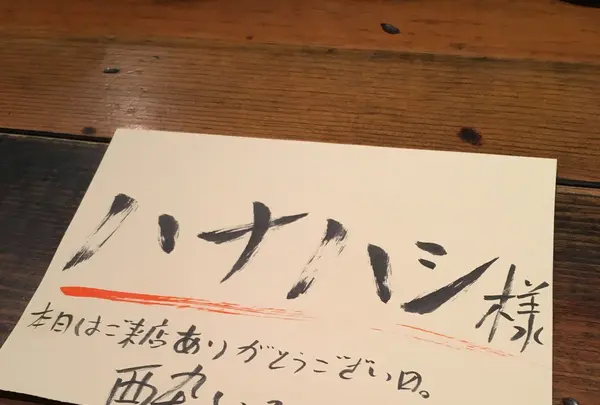 ハナハシ様
本日はご来店ありがとうございます。